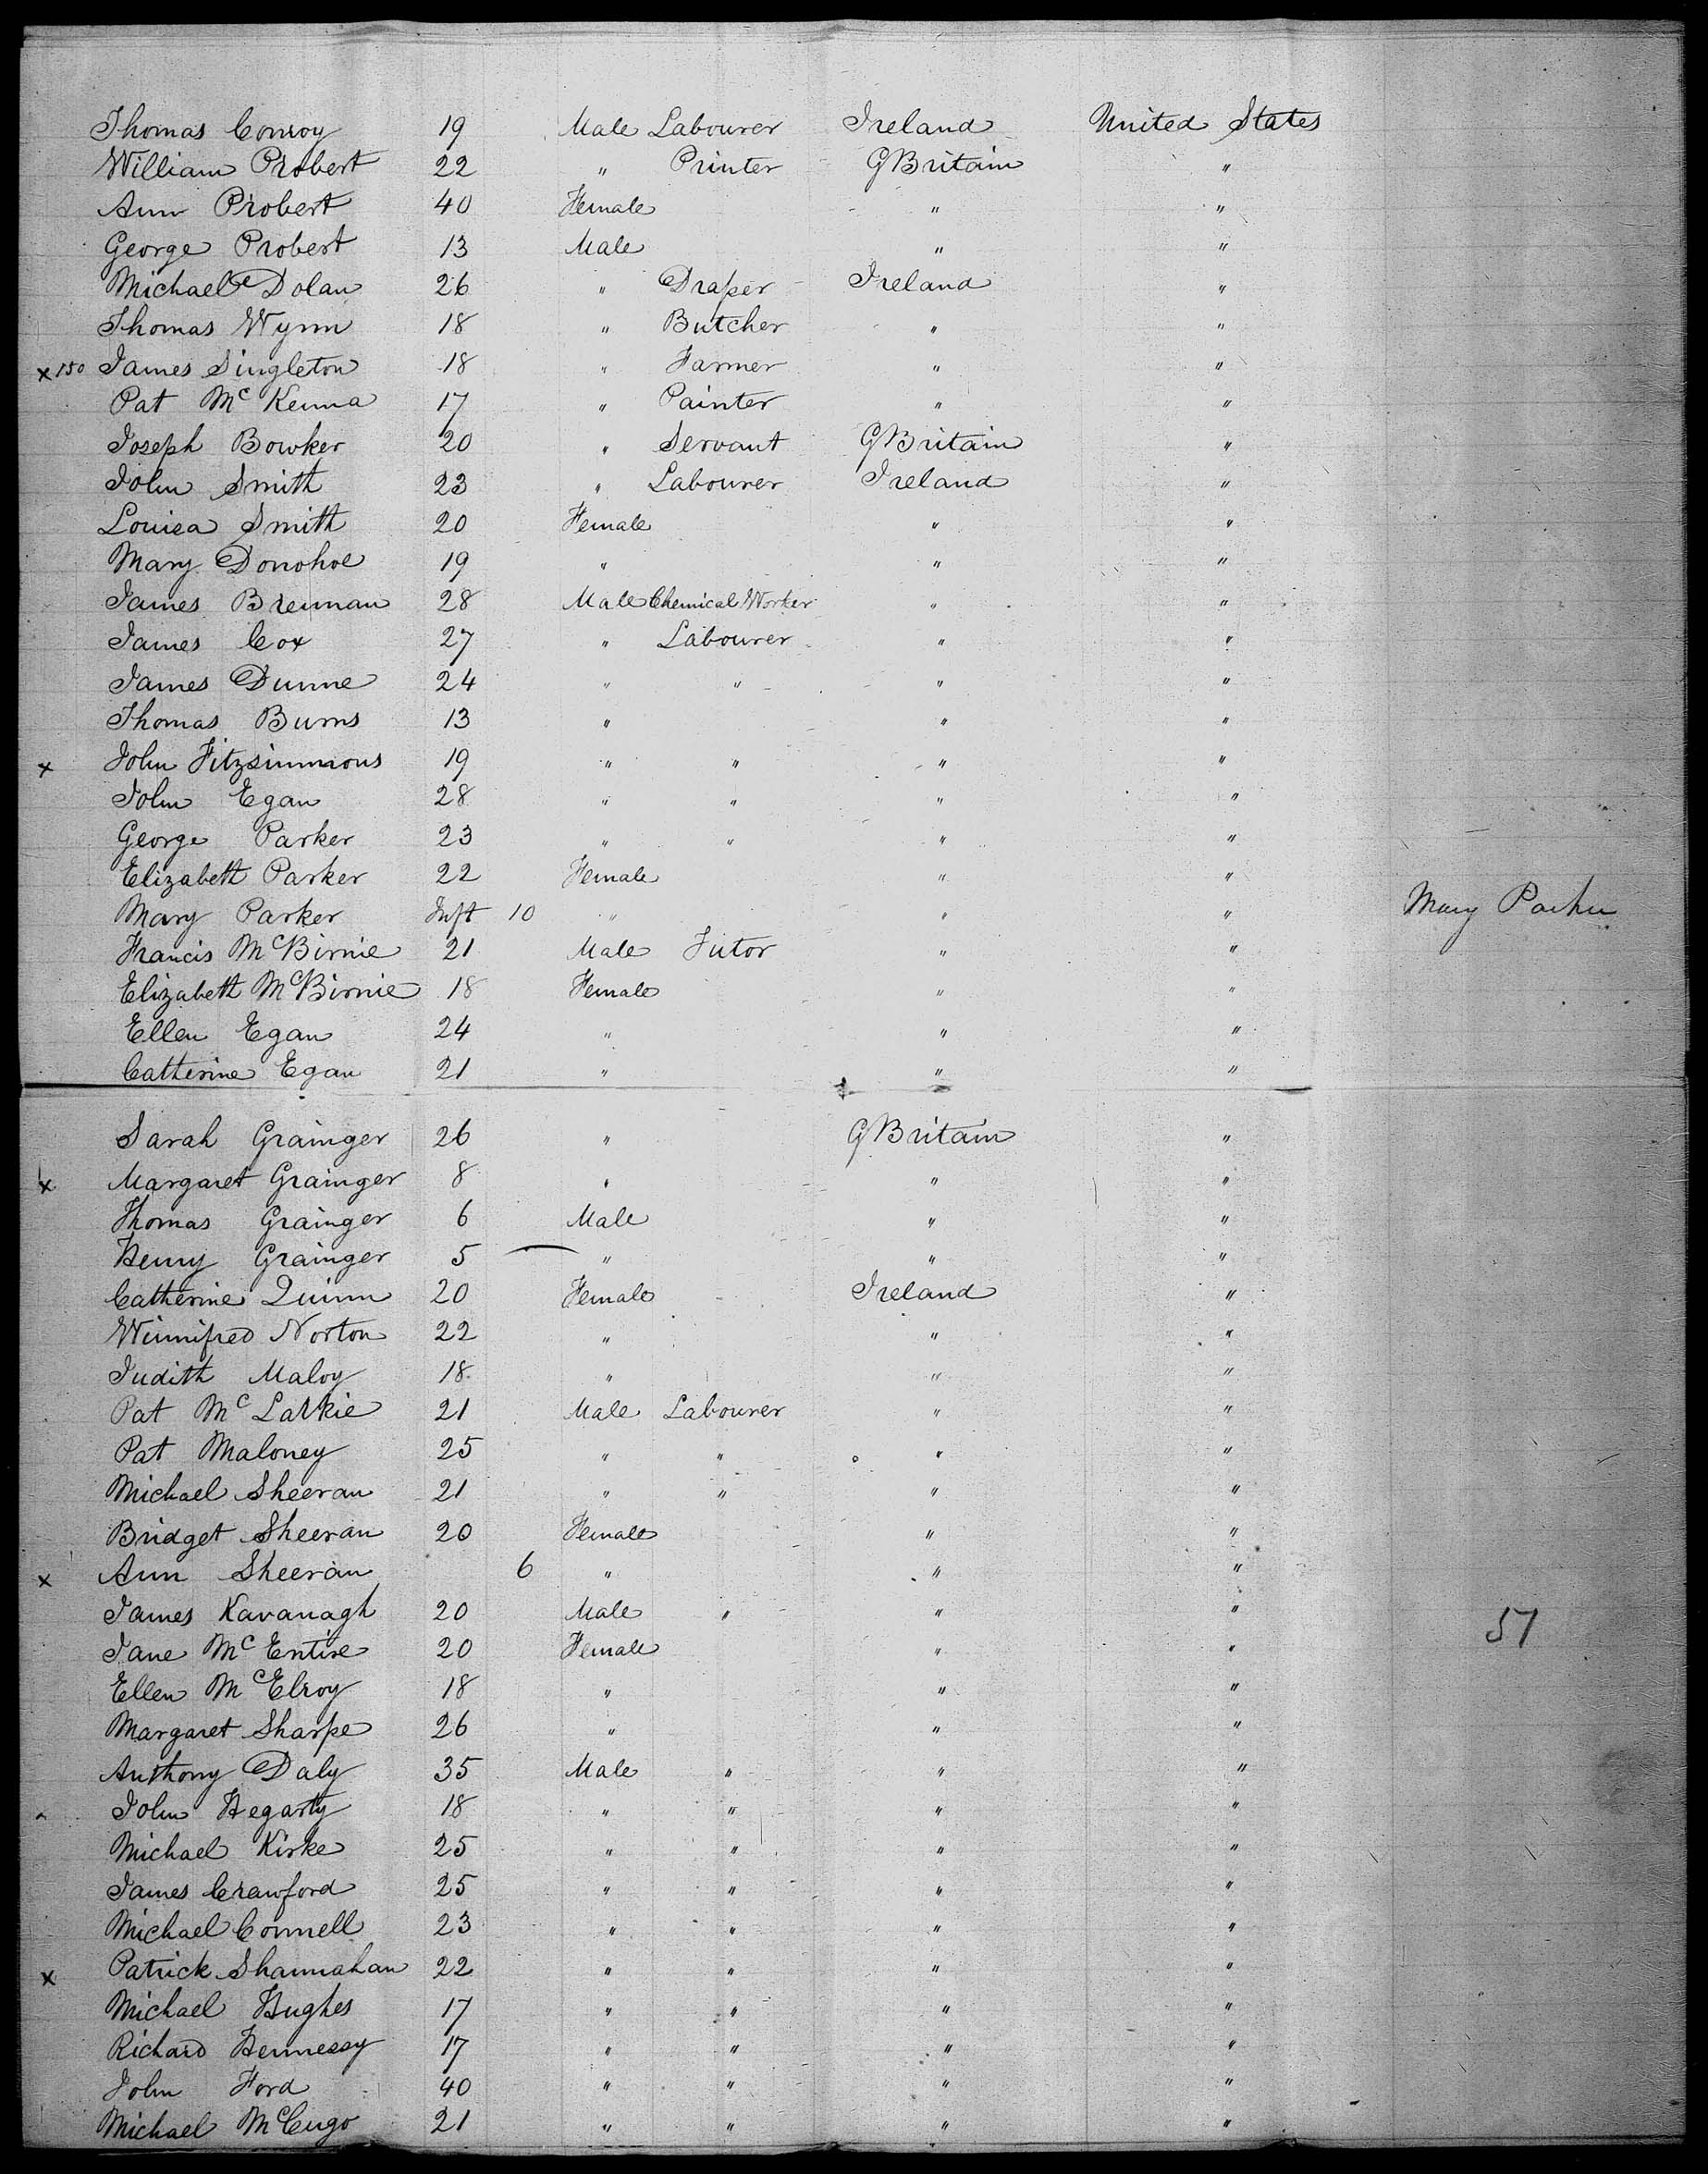 Thomas Conroy 19 Male Labourer Ireland United States
William Probert 22 " Printer GBritain "
Ann Probert 40 Female " "
George Probert 13 Male " "
Michael Dolan 26 " Draper Ireland "
Thomas Wynn 18 " Butcher " "
x150 James Singleton 18 " Farmer " "
Pat McKenna 17 " Painter " "
Joseph Bowker 20 " Servant GBritain "
John Smith 23 " Labourer Ireland "
Louisa Smith 20 Female " "
Mary Donohoe 19 " " "
James Brennan 28 Male Chemical Worker " "
James Cox 27 " Labourer " "
James Dunne 24 " " " "
Thomas Burns 13 " " "
x John Fitzsimmons 19 " " " "
John Egan 28 " " " "
George Parker 23 " " " "
Elizabeth Parker 22 Female " "
Mary Parker Inft 10 " " " Mary Parker
Francis McBirnie 21 Male Tutor " "
Elizabeth McBirnie 18 Female " "
Ellen Egan 24 " " "
Catherine Egan 21 " " "
Sarah Grainger 26 " GBritain "
x Margaret Grainger 8 " " "
Thomas Grainger 6 Male " "
Henry Grainger 5 " " "
Catherine Quinn 20 Female Ireland "
Winnifred Norton 22 " " "
Judith Maloy 18 " " "
Pat Mc Larkie 21 Male Labourer " "
Pat Maloney 25 " " " "
Michael Sheeran 21 " " " "
Bridget Sheeran 20 Female " "
x Ann Sheeran 6 " " "
James Kavanagh 20 Male " " " 57
Jane McEntire 20 Female " "
Ellen McElroy 18 " " "
Margaret Sharpe 26 " " "
Anthony Daly 35 Male " " "
John Hegarty 18 " " " "
Michael Kirke 25 " " " "
James Crawford 25 " " " "
Michael Connell 23 " " " "
x Patrick Shannahan 22 " " " "
Michael Hughes 17 " " " "
Richard Hennessy 17 " " " "
John Ford 40 " " " "
Michael McCugo 21 " " " "